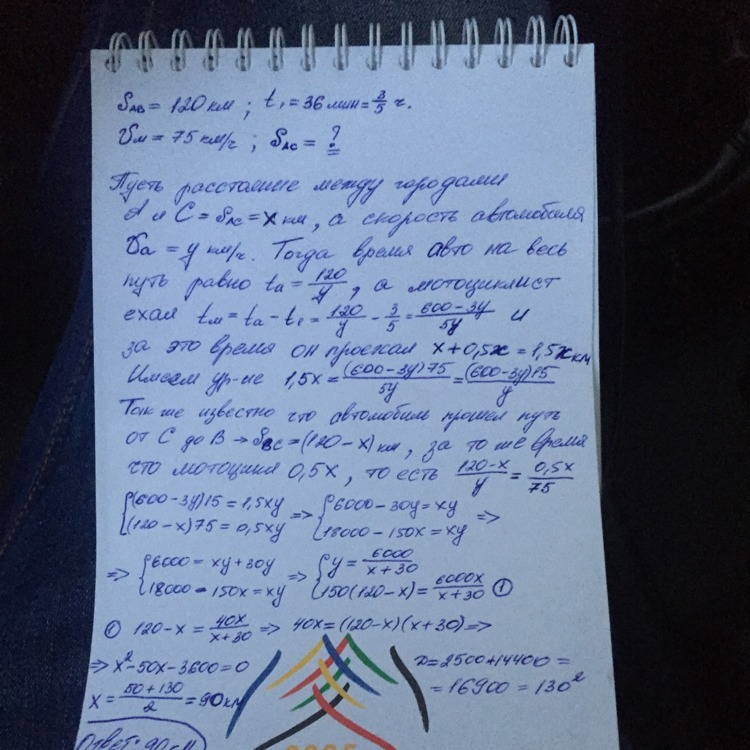 S_AB = 120 км ; t₁ = 36 мин = 3/5 ч.
υ_м = 75 км/ч ; S_AC = ?
Пусть расстояние между городами
A и C = S_AC = x км, а скорость автомобиля
υ_a = y км/ч. Тогда время авто на весь
путь равно t_a = 120/y, а мотоциклист
ехал t_м = t_a - t₁ = 120/y - 3/5 = (600-3y)/5y и
за это время он проехал x + 0,5x = 1,5x км
Имеем ур-ие 1,5x = (600-3y)75/5y = (600-3y)15/y
Так же известно что автомобиль прошел путь
от C до B → S_BC = (120-x) км, за то же время
что мотоцикл 0,5x, то есть (120-x)/y = 0,5x/75
{(600-3y)15 = 1,5xy => {6000-30y = xy =>
{(120-x)75 = 0,5xy {18000-150x = xy
=> {6000 = xy+30y => {y = 6000/(x+30)
{18000-150x = xy {150(120-x) = 6000x/(x+30) ①
① 120-x = 40x/(x+30) => 40x = (120-x)(x+30) =>
=> x²-50x-3600 = 0 D = 2500+14400 =
x = (50+130)/2 = 90 км = 16900 = 130²
Ответ: 90 км